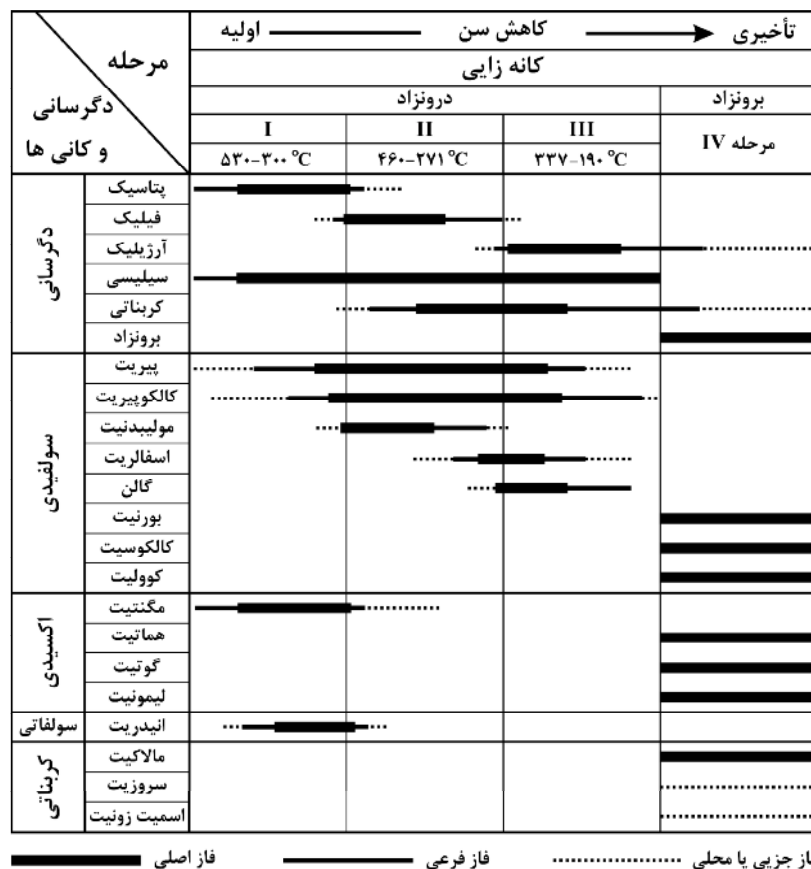 مرحله
دگرسانی
و کانی ها
اولیه کاهش سن تأخیری
کانه زایی
درونزاد برونزاد
I II III مرحله IV
۵۳۰-۳۰۰ °C ۴۶۰-۲۷۱ °C ۳۳۷-۱۹۰ °C
دگرسانی
پتاسیک
فیلیک
آرژیلیک
سیلیسی
کربناتی
برونزاد
سولفیدی
پیریت
کالکوپیریت
مولیبدنیت
اسفالریت
گالن
بورنیت
کالکوسیت
کوولیت
اکسیدی
مگنتیت
هماتیت
گوتیت
لیمونیت
سولفاتی
انیدریت
کربناتی
مالاکیت
سروزیت
اسمیت زونیت
فاز اصلی فاز فرعی از جزیی یا محلی